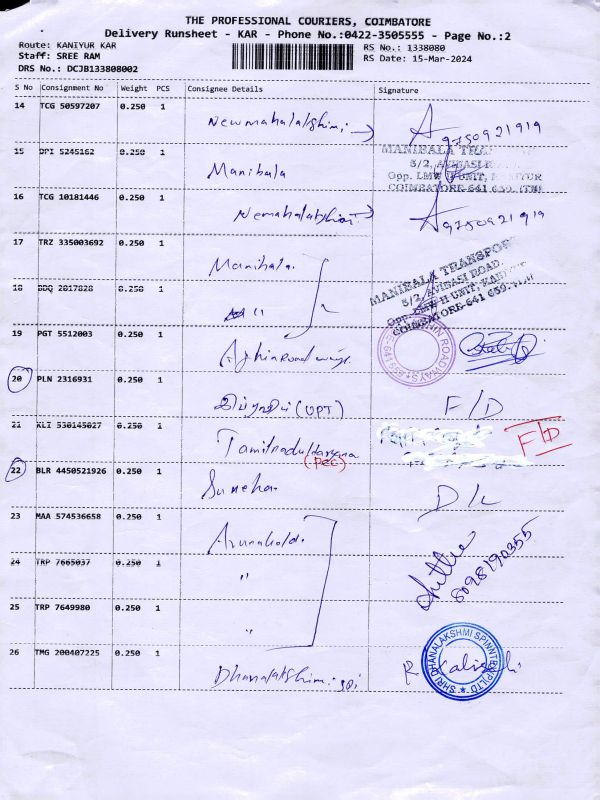 THE PROFESSIONAL COURIERS, COIMBATORE
Delivery Runsheet - KAR - Phone No.:0422-3505555 - Page No.:2
Route: KANIYUR KAR
RS No.: 1338080
Staff: SREE RAM
RS Date: 15-Mar-2024
DRS No.: DCJB133808002
S No Consignment No Weight PCS Consignee Details Signature
14 TCG 50597207 0.250 1
Newmahalakshimi 9750921919
15 DPI 5245162 0.250 1
Manibala
MANIBALA
3/2, AVINASI
Opp. LMW II UNIT,
COIMBATORE-641 659. (TN)
16 TCG 10181446 0.250 1
9750921919
17 TRZ 335003692 0.250 1
Manibala
MANIBALA TRANSPORT
3/2, AVINASI ROAD,
Opp. LMW II UNIT,
COIMBATORE-641 659.
18 BDQ 2017828 0.250 1
"
19 PGT 5512003 0.250 1
ROADWAYS
20 PLN 2316931 0.250 1
(UPT) F/D
21 KLI 530145027 0.250 1
Tamilnadu
F/D
22 BLR 4450521926 0.250 1
Suneha D/L
23 MAA 574536658 0.250 1
8098190355
24 TRP 7665037 0.250 1
"
25 TRP 7649980 0.250 1
"
26 TMG 200407225 0.250 1
Dhanalakshimi
SHRI DHANALAKSHMI SPINNTEX P LTD